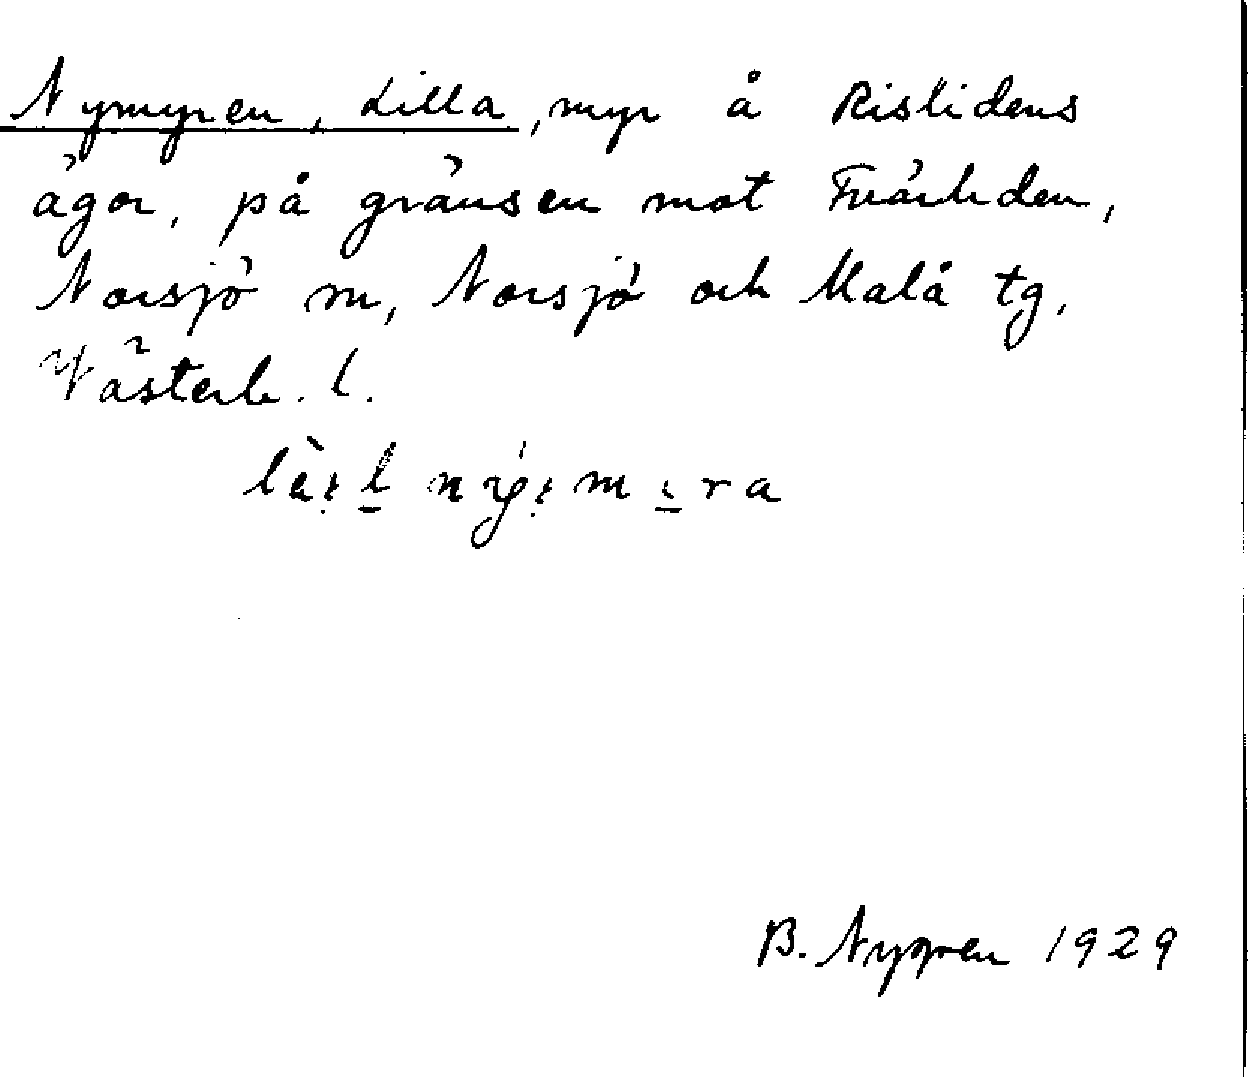 Nymyren, Lilla, myr å Rislidens
ägor, på gränsen mot Tvärliden,
Norsjö sn, Norsjö och Malå tg,
Västerb. l.
B. Nygren 1929